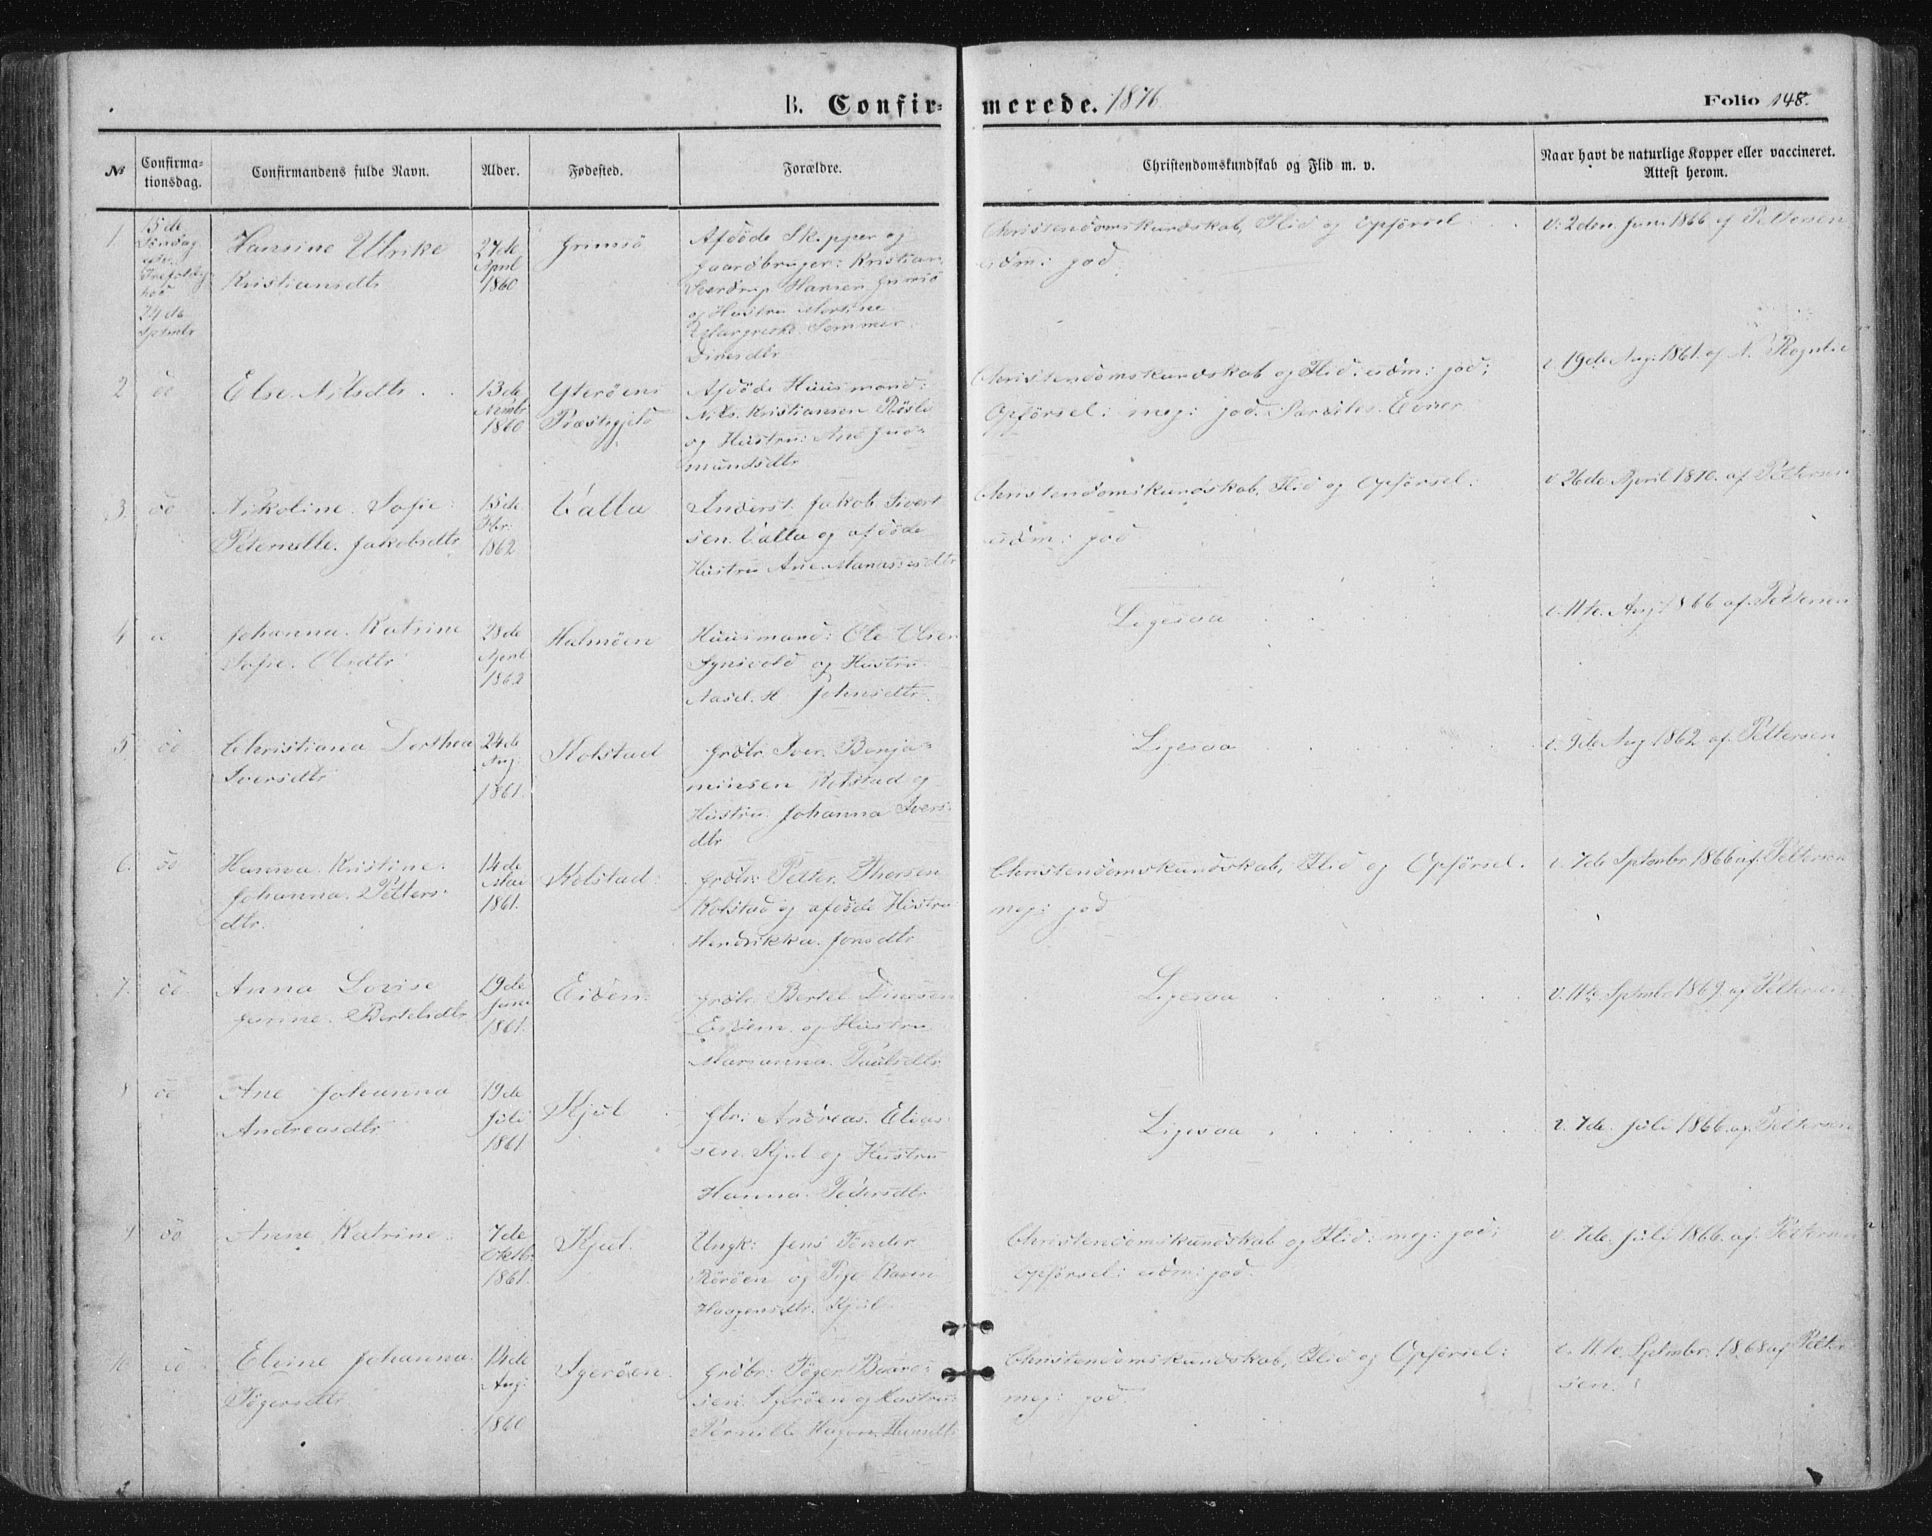 B. Confirmerede. 1876
Folio 148.
№
Confirmationsdag.
Confirmandens fulde Navn.
Alder.
Fødested.
Forældre.
Christendomskundskab og Flid m. v.
Naar havt de naturlige Kopper eller vaccineret. Attest herom.
1
15de
Søndag
24de
Septmbr
Hansine Ulrike
Kristiansdtr
27de
April
1860
Grimsö
Afdöde Skipper og
Gaardbruger: Kristian
Sverdrup Hansen Grimsö
og Hustru
Sommer
Christendomskundskab, Flid og Opförsel
udm: god
v: 2den Juni 1866 af Pettersen
2
do
Else Nilsdtr
13de
Novbr
1860
Yteröens
Præstegjeld
Afdöde Huusmand:
Nils Kristiansen
og Hustru: Ane Gud=
mundsdtr
Christendomskundskab og Flid: udm: god;
Opförsel: meg: god. Evner
v. 19de Aug: 1861. af N. Rognlie
3
do
Nikoline Sofie
Peternille Jakobsdtr
15de
1862
Valla
Inderst Jakob Sivert
sen Valla og afdöde
Hustru Ane Manassesdtr
Christendomskundskab, Flid og Opförsel:
udm: god
v. 26de April 1870. af Pettersen
4
Johanna Katrine
Sofie Olsdtr
28de
April
1862
Halmöen
Huusmand: Ole Olsen
og Hustru
Johnsdtr
Ligesaa
v. 11te Aug: 1866 af Pettersen
5
do
Christiana Dorthea
Iversdtr
24de
Aug:
1861.
Kolstad
Grdbr Iver Benja=
minsen Kolstad og
Hustru Johanna Ivers
dtr
Ligesaa
v. 9de Aug 1862 af Pettersen
6.
do
Hanna Kristine
Johanna Petters
dtr.
14de
Mai
1861.
Kolstad.
Grdbr: Petter Thorsen
Kolstad og afdöde Hustru
Hendrikka Jonsdtr
Christendomskundskab, Flid og Opförsel.
meg: god
v. 7de Septmbr 1866 af Pettersen
7.
do
Anna Lovise
Bertelsdtr
19de
Juni
1861.
Eiden
Grdbr. Bertel
Eidem og Hustru
Marianna Paulsdtr
Ligesaa
v. 11te Septmbr 1869. af Pettersen
8
do
Ane Johanna
Andreasdtr
19de
Juli
1861
Kjul
Gbr: Andreas Elias
sen Kjul og Hustru
Hanna Pedersdtr
Ligesaa
v. 7de Juli 1866. af Pettersen
9
do
Anne Katrine
7de
Oktbr:
1861.
Kjul
Ungk: Jens
og Pige Karen
Haagensdtr Kjul
Christendomskundskab og Flid: meg: god;
Opförsel: udm: god.
v. 7de Juli 1866. af Pettersen
10
do
Eline Johanna
Tögersdtr
14de
Aug:
1860
Igeröen
Grdbr: Töger
sen Igeröen og Hustru:
Pernille Hansdtr
Christendomskundskab, Flid og Opförsel:
meg: god.
v. 11te Septmbr. 1868 af Petter
sen.